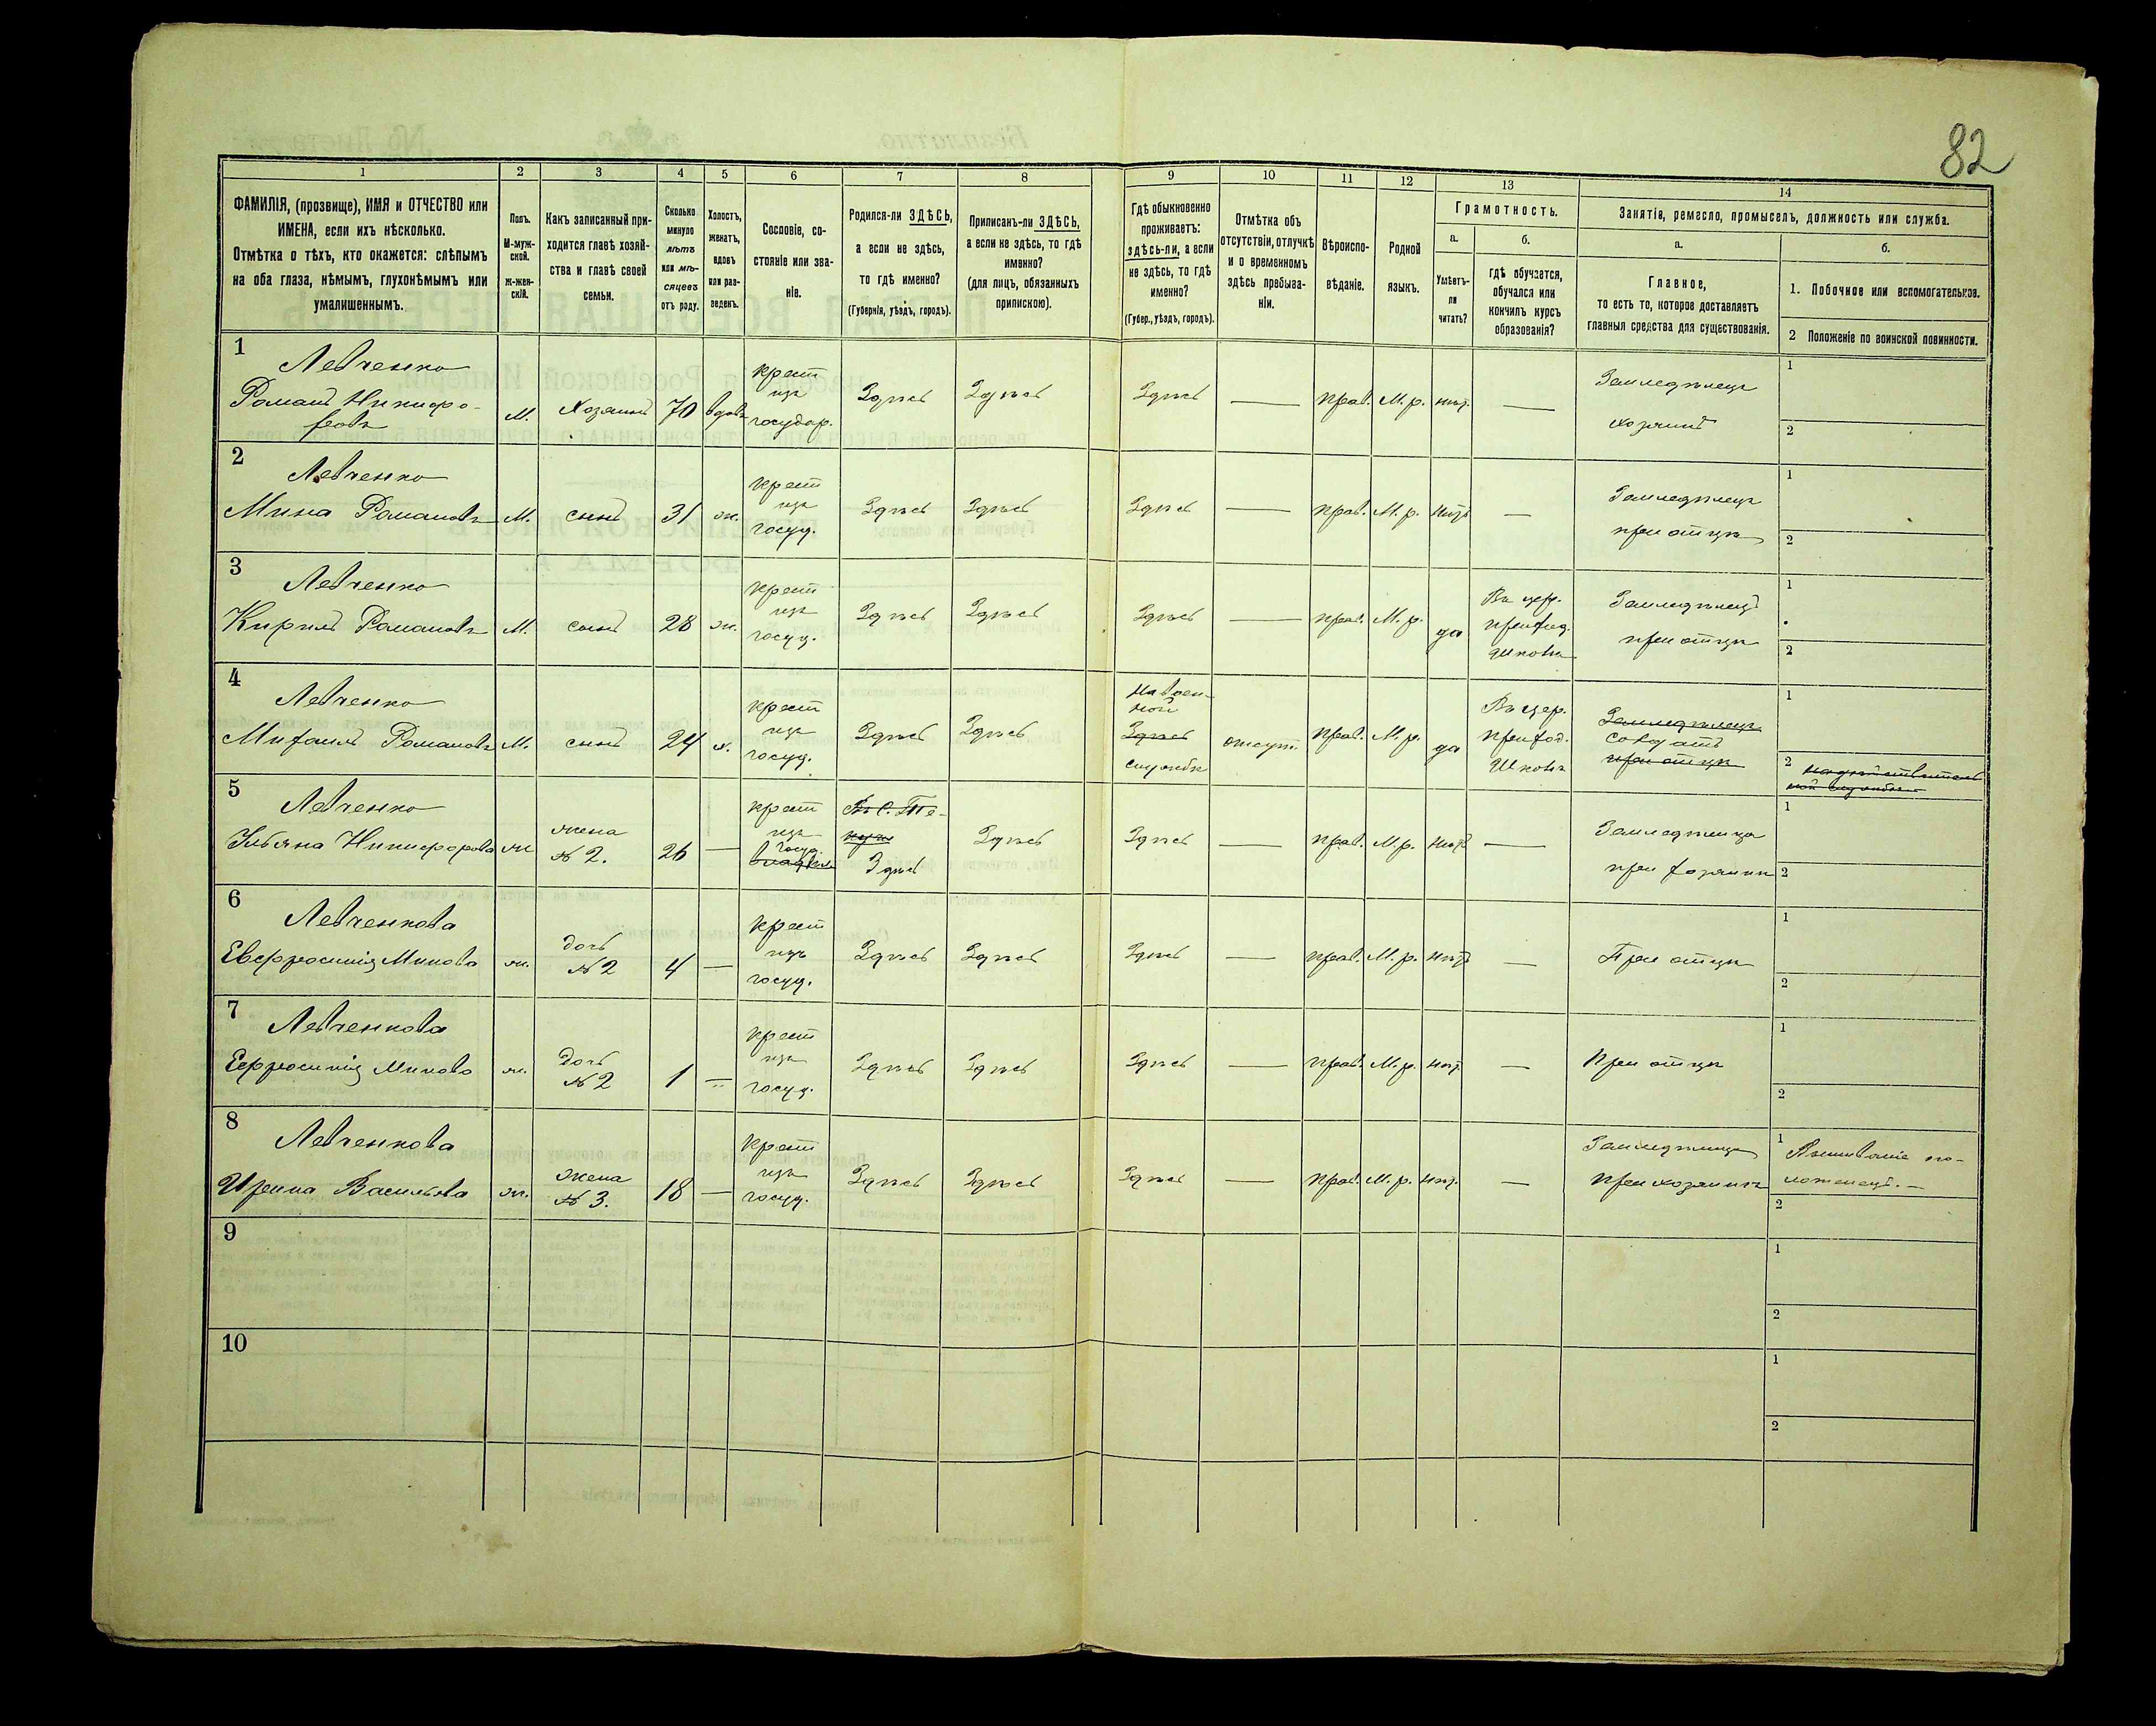 82
1 2 3 4 5 6 7 8 9 10 11 12 13 14
ФАМИЛІЯ, (прозвище), ИМЯ и ОТЧЕСТВО или
ИМЕНА, если ихъ нѣсколько.
Отмѣтка о тѣхъ, кто окажется: слѣпымъ
на оба глаза, нѣмымъ, глухонѣмымъ или
умалишеннымъ.
Полъ.
М-муж-
ской.
Ж-жен-
скій.
Какъ записанный при-
ходится главѣ хозяй-
ства и главѣ своей
семьи.
Сколько
минуло
лѣтъ
или мѣ-
сяцевъ
отъ роду.
Холостъ,
женатъ,
вдовъ
или раз-
веденъ.
Сословіе, со-
стояніе или зва-
ніе.
Родился-ли ЗДѢСЬ,
а если не здѣсь,
то гдѣ именно?
(Губернія, уѣздъ, городъ).
Приписанъ-ли ЗДѢСЬ,
а если не здѣсь, то гдѣ
именно?
(для лицъ, обязанныхъ
припискою).
Гдѣ обыкновенно
проживаетъ:
здѣсь-ли, а если
не здѣсь, то гдѣ
именно?
(Губер., уѣздъ, городъ).
Отмѣтка объ
отсутствіи, отлучкѣ
и о временномъ
здѣсь пребыва-
ніи.
Вѣроиспо-
вѣданіе.
Родной
языкъ.
Грамотность.
а.
Умѣетъ-
ли
читать?
б.
гдѣ обучается,
обучался или
кончилъ курсъ
образованія?
Занятія, ремесло, промыселъ, должность или служба.
а.
Главное,
то есть то, которое доставляетъ
главныя средства для существованія.
б.
1. Побочное или вспомогательное.
2 Положеніе по воинской повинности.
1
Левченко
Романъ Никифо-
ровъ
М. Хозяинъ 70 вдовъ
крест
изъ
государ.
Здѣсь Здѣсь Здѣсь — прав. М. р. нѣт. —
Земледѣлецъ
хозяинъ
1
2
2
Левченко
Мина Романовъ
М. сынъ 31 ж.
крест
изъ
госуд.
Здѣсь Здѣсь Здѣсь — прав. М. р. нѣтъ —
Земледѣлецъ
при отцѣ
1
2
3
Левченко
Кирилъ Романовъ
М. сынъ 28 ж.
крест
изъ
госуд.
Здѣсь Здѣсь Здѣсь — прав. М. р. да
Въ цер.
приход.
школѣ
Земледѣлецъ
при отцѣ
1
2
4
Левченко
Михаилъ Романовъ
М. сынъ 24 х.
крест
изъ
госуд.
Здѣсь Здѣсь
На воен-
ной
Здѣсь
службѣ
отсут. прав. М. р. да
Въ цер.
приход.
Школѣ
Земледѣлецъ
Солдатъ
при отцѣ
1
2 на дѣйствитель
ной службѣ
5
Левченко
Ульяна Никифорова
ж
жена
№ 2.
26 —
крест
изъ
госуд.
Здѣсь
Здѣсь Здѣсь — прав. М. р. нѣтъ —
Земледѣлица
при хозяинѣ
1
2
6
Левченкова
Евфросинія Минова
ж.
дочь
№ 2
4 —
крест
изъ
госуд.
Здѣсь Здѣсь Здѣсь — прав. М. р. нѣтъ —
При отцѣ
1
2
7
Левченкова
Ефросинія Минова
ж.
дочь
№ 2
1 —
крест
изъ
госуд.
Здѣсь Здѣсь Здѣсь — прав. М. р. нѣт. —
При отцѣ
1
2
8
Левченкова
Ирина Васильева
ж.
жена
№ 3.
18 —
крест
изъ
госуд.
Здѣсь Здѣсь Здѣсь — прав. М. р. нѣт. —
Земледѣлица
при хозяинѣ
1 Вышиваніе по-
лотенецъ. —
2
9
1
2
10
1
2